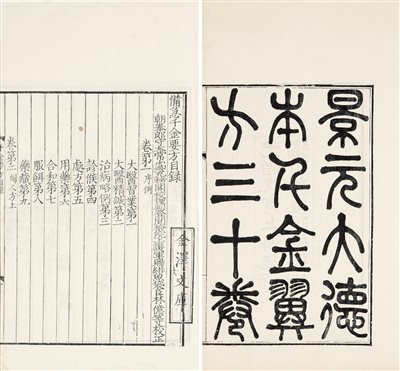 景元大德
本千金翼
方三十卷
備急千金要方目録
朝奉郎守太常少卿充秘閣校理判登聞檢院上護軍賜緋魚袋臣林億等校正
卷第一 序例
大醫習業第一
大醫精誠第二
治病略例第三
診候第四
處方第五
用藥第六
合和第七
服餌第八
藥藏第九
卷第二 婦人方上
金澤文庫